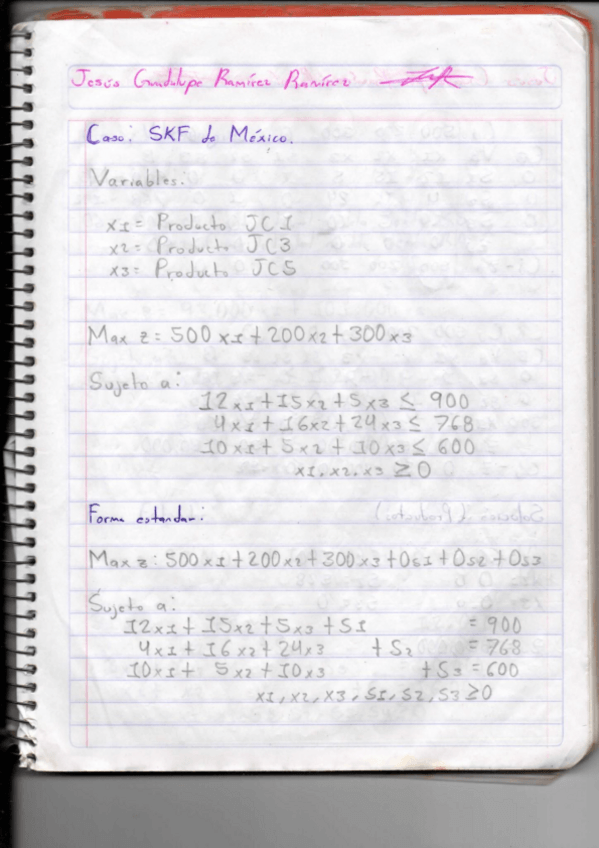 Jesús Guadalupe Ramírez Ramírez
Caso: SKF de México.
Variables:
x1= Producto JC1
x2= Producto JC3
x3= Producto JC5
Max z = 500x1+200x2+300x3
Sujeto a:
12x1+15x2+5x3 ≤ 900
4x1+16x2+24x3 ≤ 768
10x1+5x2+10x3 ≤ 600
x1,x2,x3 ≥0
Forma estandar:
Max z: 500x1+200x2+300x3+0s1+0s2+0s3
Sujeto a:
12x1+15x2+5x3+S1 = 900
4x1+16x2+24x3 +S2 = 768
10x1+ 5x2+10x3 +S3 = 600
x1,x2,x3,S1,S2,S3≥0